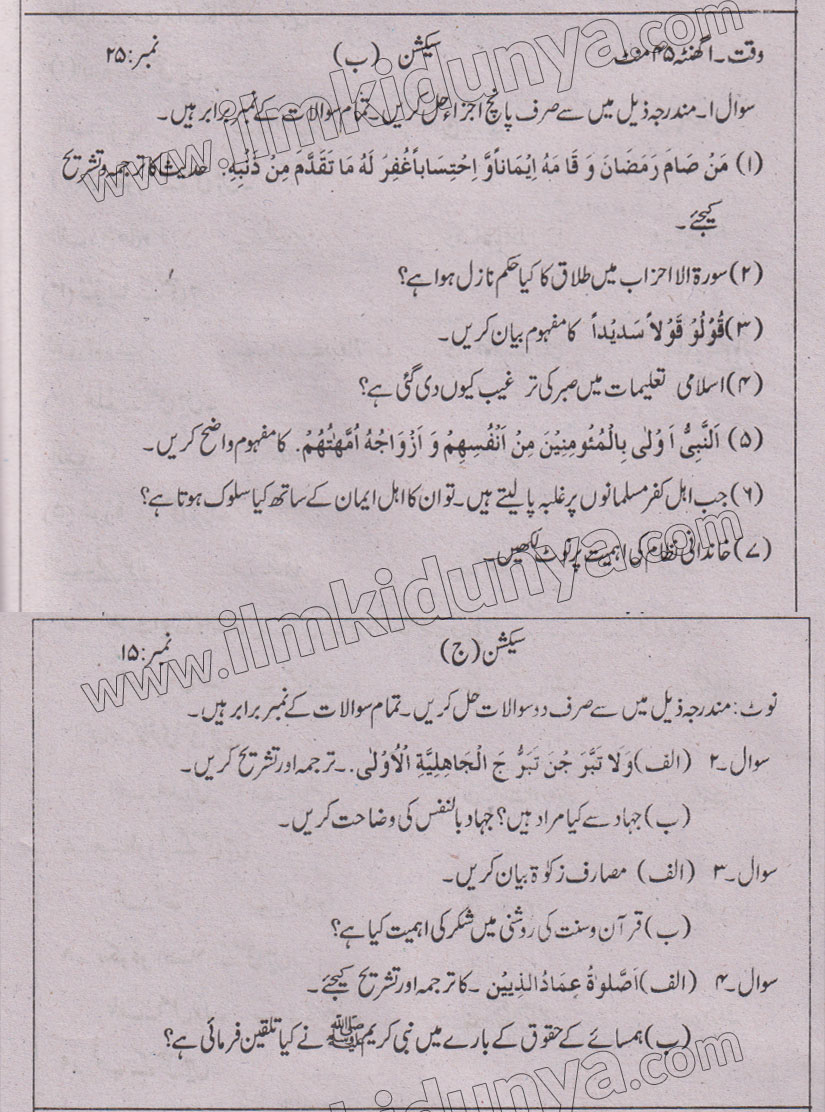 وقت۔ ۱گھنٹہ ۴۵ منٹ سیکشن (ب) نمبر: ۲۵
سوال ۱۔ مندرجہ ذیل میں سے صرف پانچ اجزاء حل کریں۔ تمام سوالات کے نمبر برابر ہیں۔
(۱) مَنْ صَامَ رَمَضَانَ وَ قَا مَهُ اِيْمَاناًوَّ اِحْتِسَاباًغُفِرَ لَهُ مَا تَقَدَّمَ مِنْ ذَنْبِهِ. حدیث کا ترجمہ و تشریح
کیجئے۔
(۲) سورۃ الاحزاب میں طلاق کا کیا حکم نازل ہوا ہے؟
(۳) قُوْلُوْ قَوْلاً سَدِيْداً کا مفہوم بیان کریں۔
(۴) اسلامی تعلیمات میں صبر کی تر غیب کیوں دی گئی ہے؟
(۵) اَلنَّبِیُّ اَوْلٰی بِالْمُئْومِنِيْنَ مِنْ اَنْفُسِهِمْ وَ اَزْوَاجُهُ اُمَّهٰتُهُمْ. کا مفہوم واضح کریں۔
(۶) جب اہل کفر مسلمانوں پر غلبہ پا لیتے ہیں۔ تو ان کا اہل ایمان کے ساتھ کیا سلوک ہوتا ہے؟
(۷) خاندانی نظام کی اہمیت پر نوٹ لکھیں۔
سیکشن (ج) نمبر: ۱۵
نوٹ: مندرجہ ذیل میں سے صرف دو سوالات حل کریں۔ تمام سوالات کے نمبر برابر ہیں۔
سوال۔۲ (الف) وَلَا تَبَّرَ جْنَ تَبَرُّ جَ الْجَاهِلِيَّةِ الْاُوْلٰی.۔ ترجمہ اور تشریح کریں۔
(ب) جہاد سے کیا مراد ہیں؟ جہاد بالنفس کی وضاحت کریں۔
سوال۔۳ (الف) مصارف زکوٰۃ بیان کریں۔
(ب) قرآن و سنت کی روشنی میں شکر کی اہمیت کیا ہے؟
سوال۔۴ (الف) اَصَّلوٰةُ عِمَادُالدِّيِيْن ۔ کا ترجمہ اور تشریح کیجئے۔
(ب) ہمسائے کے حقوق کے بارے میں نبی کریم ﷺ نے کیا تلقین فرمائی ہے؟
www.ilmkidunya.com
www.ilmkidunya.com
kidunya.com